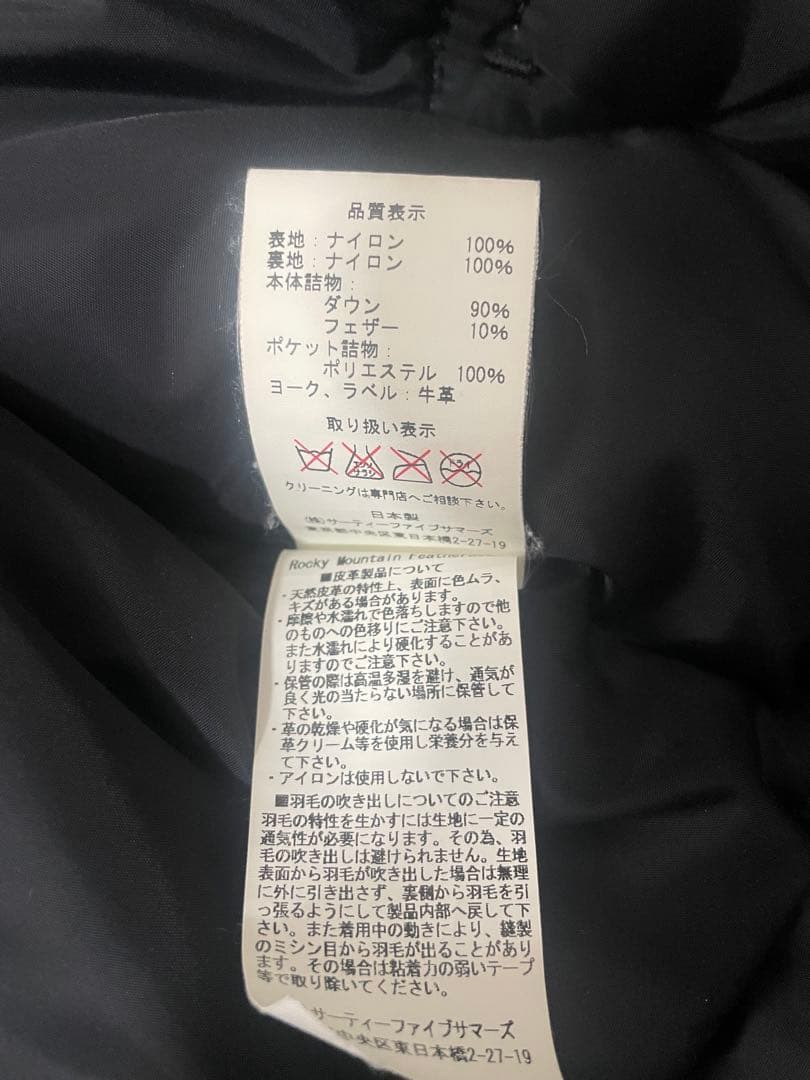 品質表示
表地：ナイロン 100%
裏地：ナイロン 100%
本体詰物：
ダウン 90%
フェザー 10%
ポケット詰物：
ポリエステル 100%
ヨーク、ラベル：牛革
取り扱い表示
エンソサラシ ドライ
クリーニングは専門店へご相談下さい。
日本製
(株)サーティーファイブサマーズ
東京都中央区東日本橋2-27-19
Rocky Mountain
■皮革製品について
・天然皮革の特性上、表面に色ムラ、
キズがある場合があります。
・摩擦や水濡れで色落ちしますので他
のものへの色移りにご注意下さい。
また水濡れにより硬化することがあ
りますのでご注意下さい。
・保管の際は高温多湿を避け、通気が
良く光の当たらない場所に保管して
下さい。
・革の乾燥や硬化が気になる場合は保
革クリーム等を使用し栄養分を与え
て下さい。
・アイロンは使用しないで下さい。
■羽毛の吹き出しについてのご注意
羽毛の特性を生かすには生地に一定の
通気性が必要になります。その為、羽
毛の吹き出しは避けられません。生地
表面から羽毛が吹き出した場合は無理
に外に引き出さず、裏側から羽毛を引
っ張るようにして製品内部へ戻して下
さい。また着用中の動きにより、縫製
のミシン目から羽毛が出ることがあり
ます。その場合は粘着力の弱いテープ
等で取り除いてください。
サーティーファイブサマーズ
中央区東日本橋2-27-19